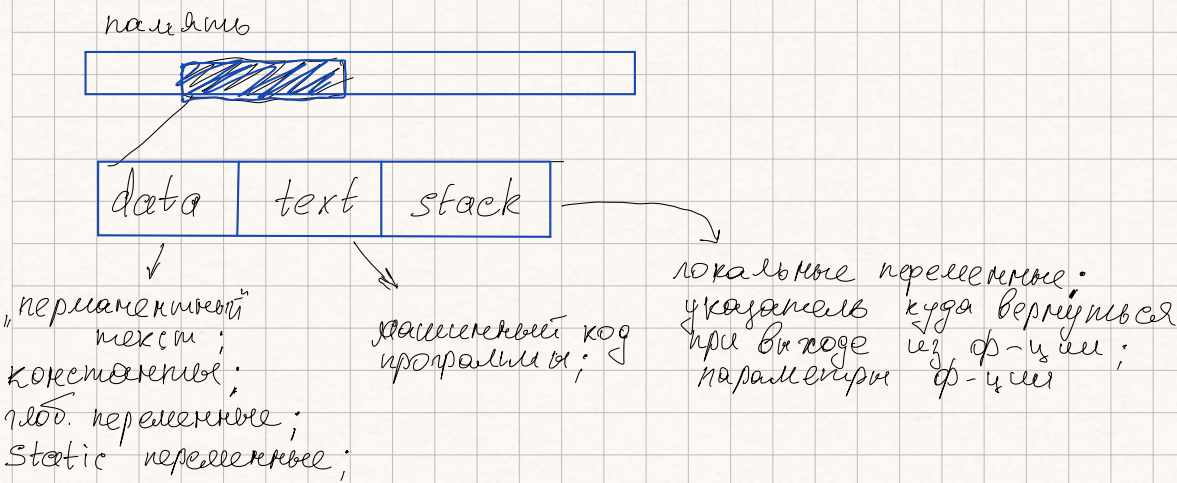 память
data text stack
„перманентный"
текст ;
константы ;
глоб. переменные ;
static переменные ;
машинный код
программы ;
локальные переменные ;
указатель куда вернуться
при выходе из ф-ции ;
параметры ф-ции